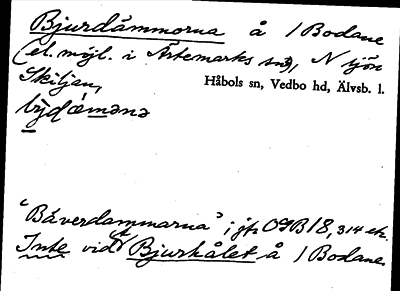 Bjurdämmorna å 1 Bodane
(el. möjl. i Ärtemarks sn), N sjön
Skiljan,
Håbols sn, Vedbo hd, Älvsb. l.
"Bäverdammarna"; jfr OGB 18, 314 etc.
Inte vid Bjurhålet å 1 Bodane